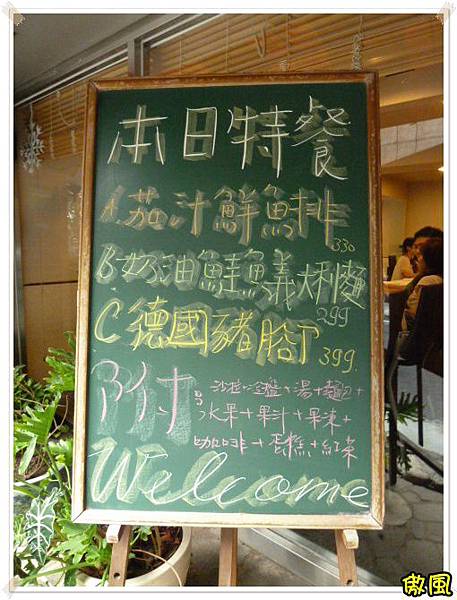 本日特餐
A.茄汁鮮魚排
330
B奶油鮭魚義大利麵
299
C德國豬腳
399.
附
沙拉冷盤+湯+麵包+
水果+果汁+果凍+
咖啡+蛋糕+紅茶
Welcome
傲風